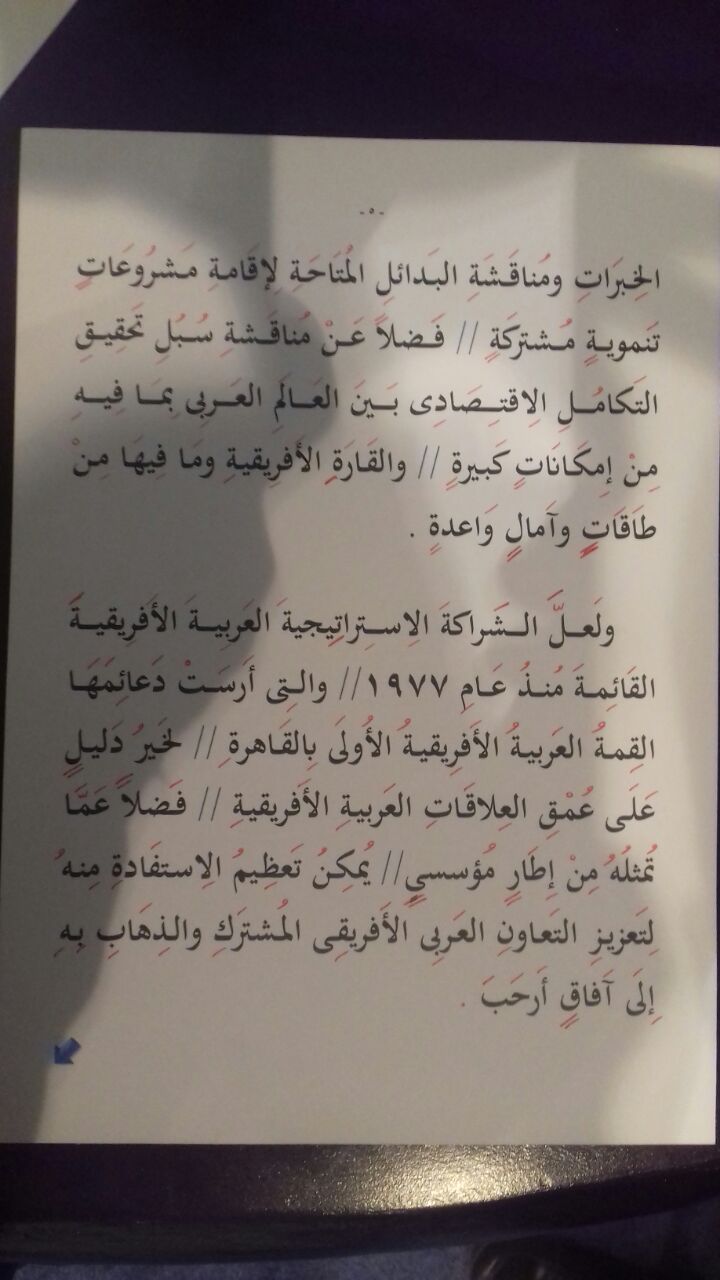 -٥-
الخِبَرَاتِ ومُناقَشَةِ البَدائلِ المُتَاحَةِ لإِقَامةِ مَشرُوعَاتٍ
تَنمويةٍ مُشتركَةٍ // فَضلاً عَنْ مُناقَشةِ سُبُلِ تَحقِيقِ
التَكامُلِ الاِقتِصَادِى بَينَ العَالَمِ العَربِى بِمَا فِيهِ
مِنْ إِمكَانَاتٍ كَبيرةٍ // والقَارَةِ الأَفرِيقيةِ ومَا فِيهَا مِنْ
طَاقَاتٍ وآمالٍ وَاعدةٍ .
ولَعلَّ الشَراكةَ الاِستِراتِيجيةَ العَرَبِيةَ الأَفرِيقيةَ
القَائِمةَ مُنذُ عَامِ ١٩٧٧// والتِى أَرسَتْ دَعائِمَهَا
القِمةُ العَربيةُ الأَفرِيقيةُ الأُولَى بِالقَاهرةِ // لَخَيرُ دَليلٍ
عَلَى عُمْقِ العِلاقَاتِ العَربيةِ الأَفرِيقيةِ // فَضلاً عَمَّا
تُمثلُهُ مِنْ إِطَارٍ مُؤسسىٍ// يُمكِنُ تَعظِيمُ الاِستفَادةِ مِنهُ
لِتَعزيزِ التَعاونِ العَربِى الأَفرِيقِى المُشتَركِ والذِهَابِ بِهِ
إِلَى آفَاقٍ أَرحَبَ .